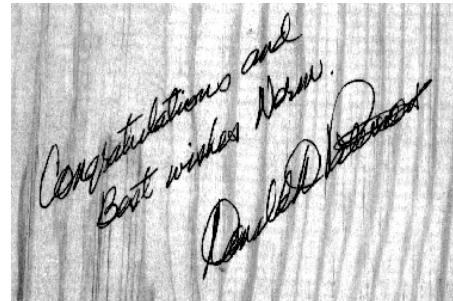 Congratulations and
Best wishes Norm.
Donald D